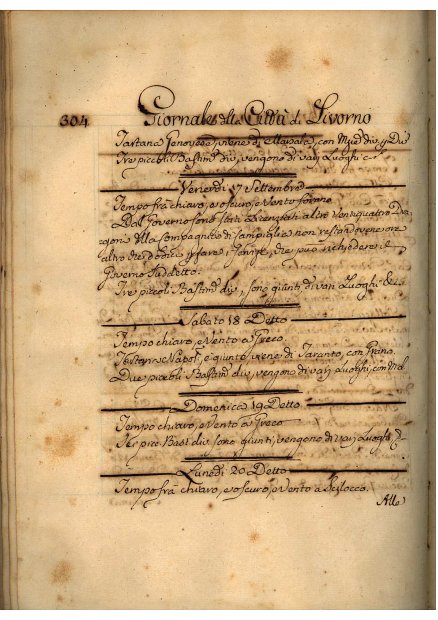 304
Giornale della Città di Livorno
Tartana Genovese, viene di Napoli, con
Tre piccoli Bastim: div: vengono di varj Luoghi
Venerdi 17 Settembre
Tempo frà chiaro, e oscuro, e Vento forano
Dal Governo sono stati licenziati altri Ventiquattro
della Compagnia di Campiglia non restandovene ora
altro che dodici per fare le che può richiedere il
Governo Suddetto.
Tre piccoli Bastim: div: sono giunti, di varj Luoghi &c.
Sabato 18 Detto
Tempo chiaro, e Vento a Greco
Tartana Napol: è giunta, viene di Taranto, con Grano.
Due piccoli Bastim: div: vengono di varj Luoghi, con
Domenica 19 Detto
Tempo chiaro, e Vento a Greco
pic: Bast: div: sono giunti, vengono di varj Luoghi &c.
Lunedi 20 Detto
Tempo frà chiaro, e oscuro, e Vento a Scilocco.
Alle